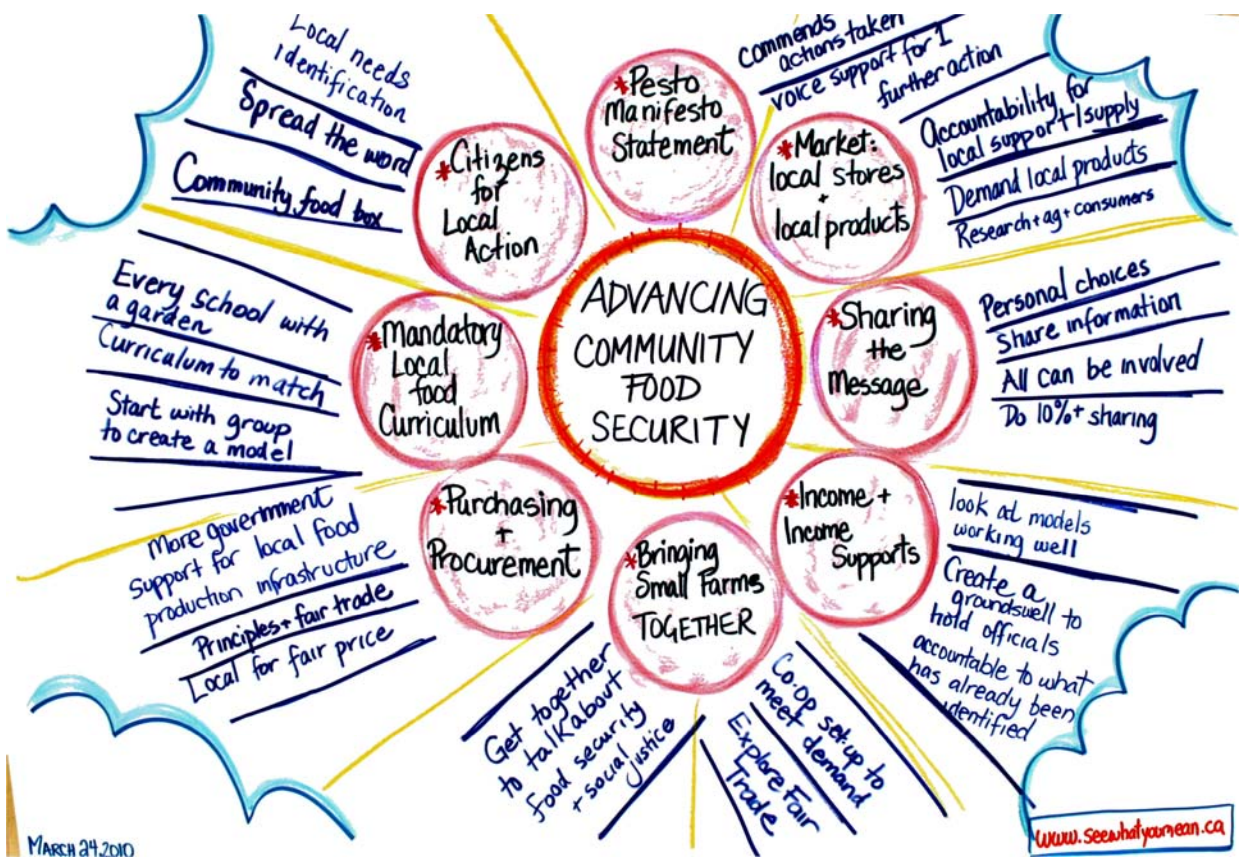 ADVANCING
COMMUNITY
FOOD
SECURITY
*Pesto
Manifesto
Statement
commends
actions taken
voice support for 1
further action
*Market:
local stores
+
local products
Accountability for
local support + supply
Demand local products
Research + ag + consumers
*Sharing
the
Message
Personal choices
Share information
All can be involved
Do 10%+ sharing
*Income +
Income
Supports
look at models
working well
Create a
groundswell to
hold officials
accountable to what
has already been
identified
*Bringing
Small Farms
TOGETHER
Co-op set-up to
meet demand
Explore Fair
Trade
Get together
to talk about
food security
+ social
justice
*Purchasing
+
Procurement
More government
support for local food
production infrastructure
Principles + fair trade
Local for fair price
*Mandatory
Local
food
Curriculum
Every school with
a garden
Curriculum to match
Start with group
to create a model
*Citizens
for
Local
Action
Local needs
identification
Spread the word
Community food box
MARCH 24, 2010
www.seewhatyoumean.ca